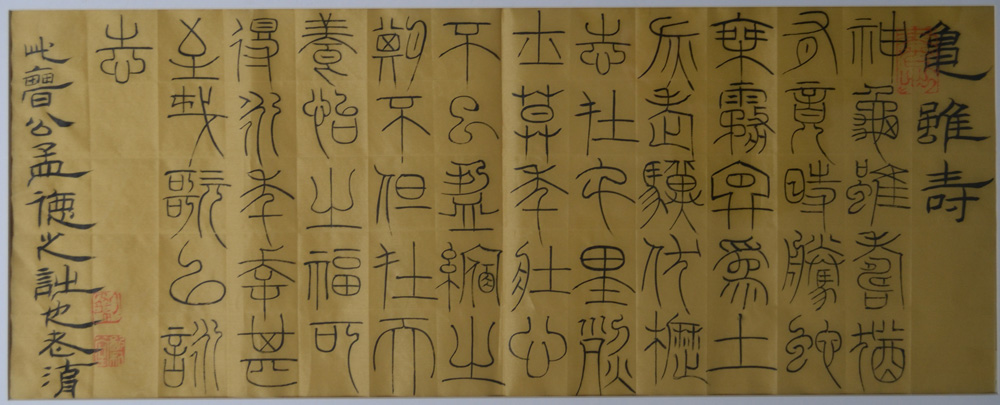 亀雖寿
神龜雖壽猶
有竟時騰蛇
乘霧終爲土
灰老驥伏櫪
志在千里烈
士莫年壯心
不已盈縮之
期不但在天
養怡之福可
得永年幸甚
至哉歌以詠
志
此曹公孟德之詩也老